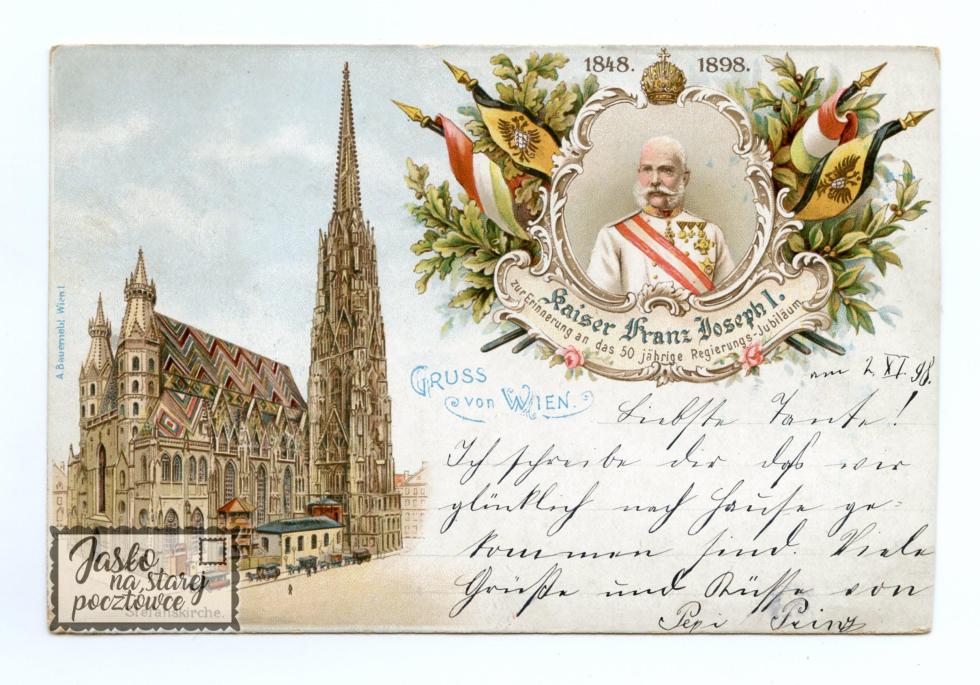 1848. 1898.
Kaiser Franz Joseph I.
zur Erinnerung an das 50 jährige Regierungs-Jubiläum
A. Bauernebl. Wien I
GRUSS
von WIEN.
am 2. XI. 98.
Liebste Tante!
Ich schreibe dir daß wir
glücklich nach Hause ge-
kommen sind. Viele
Grüße und Küsse von
Pepi Prinz
Jasło
na starej
pocztówce
Stefanskirche.